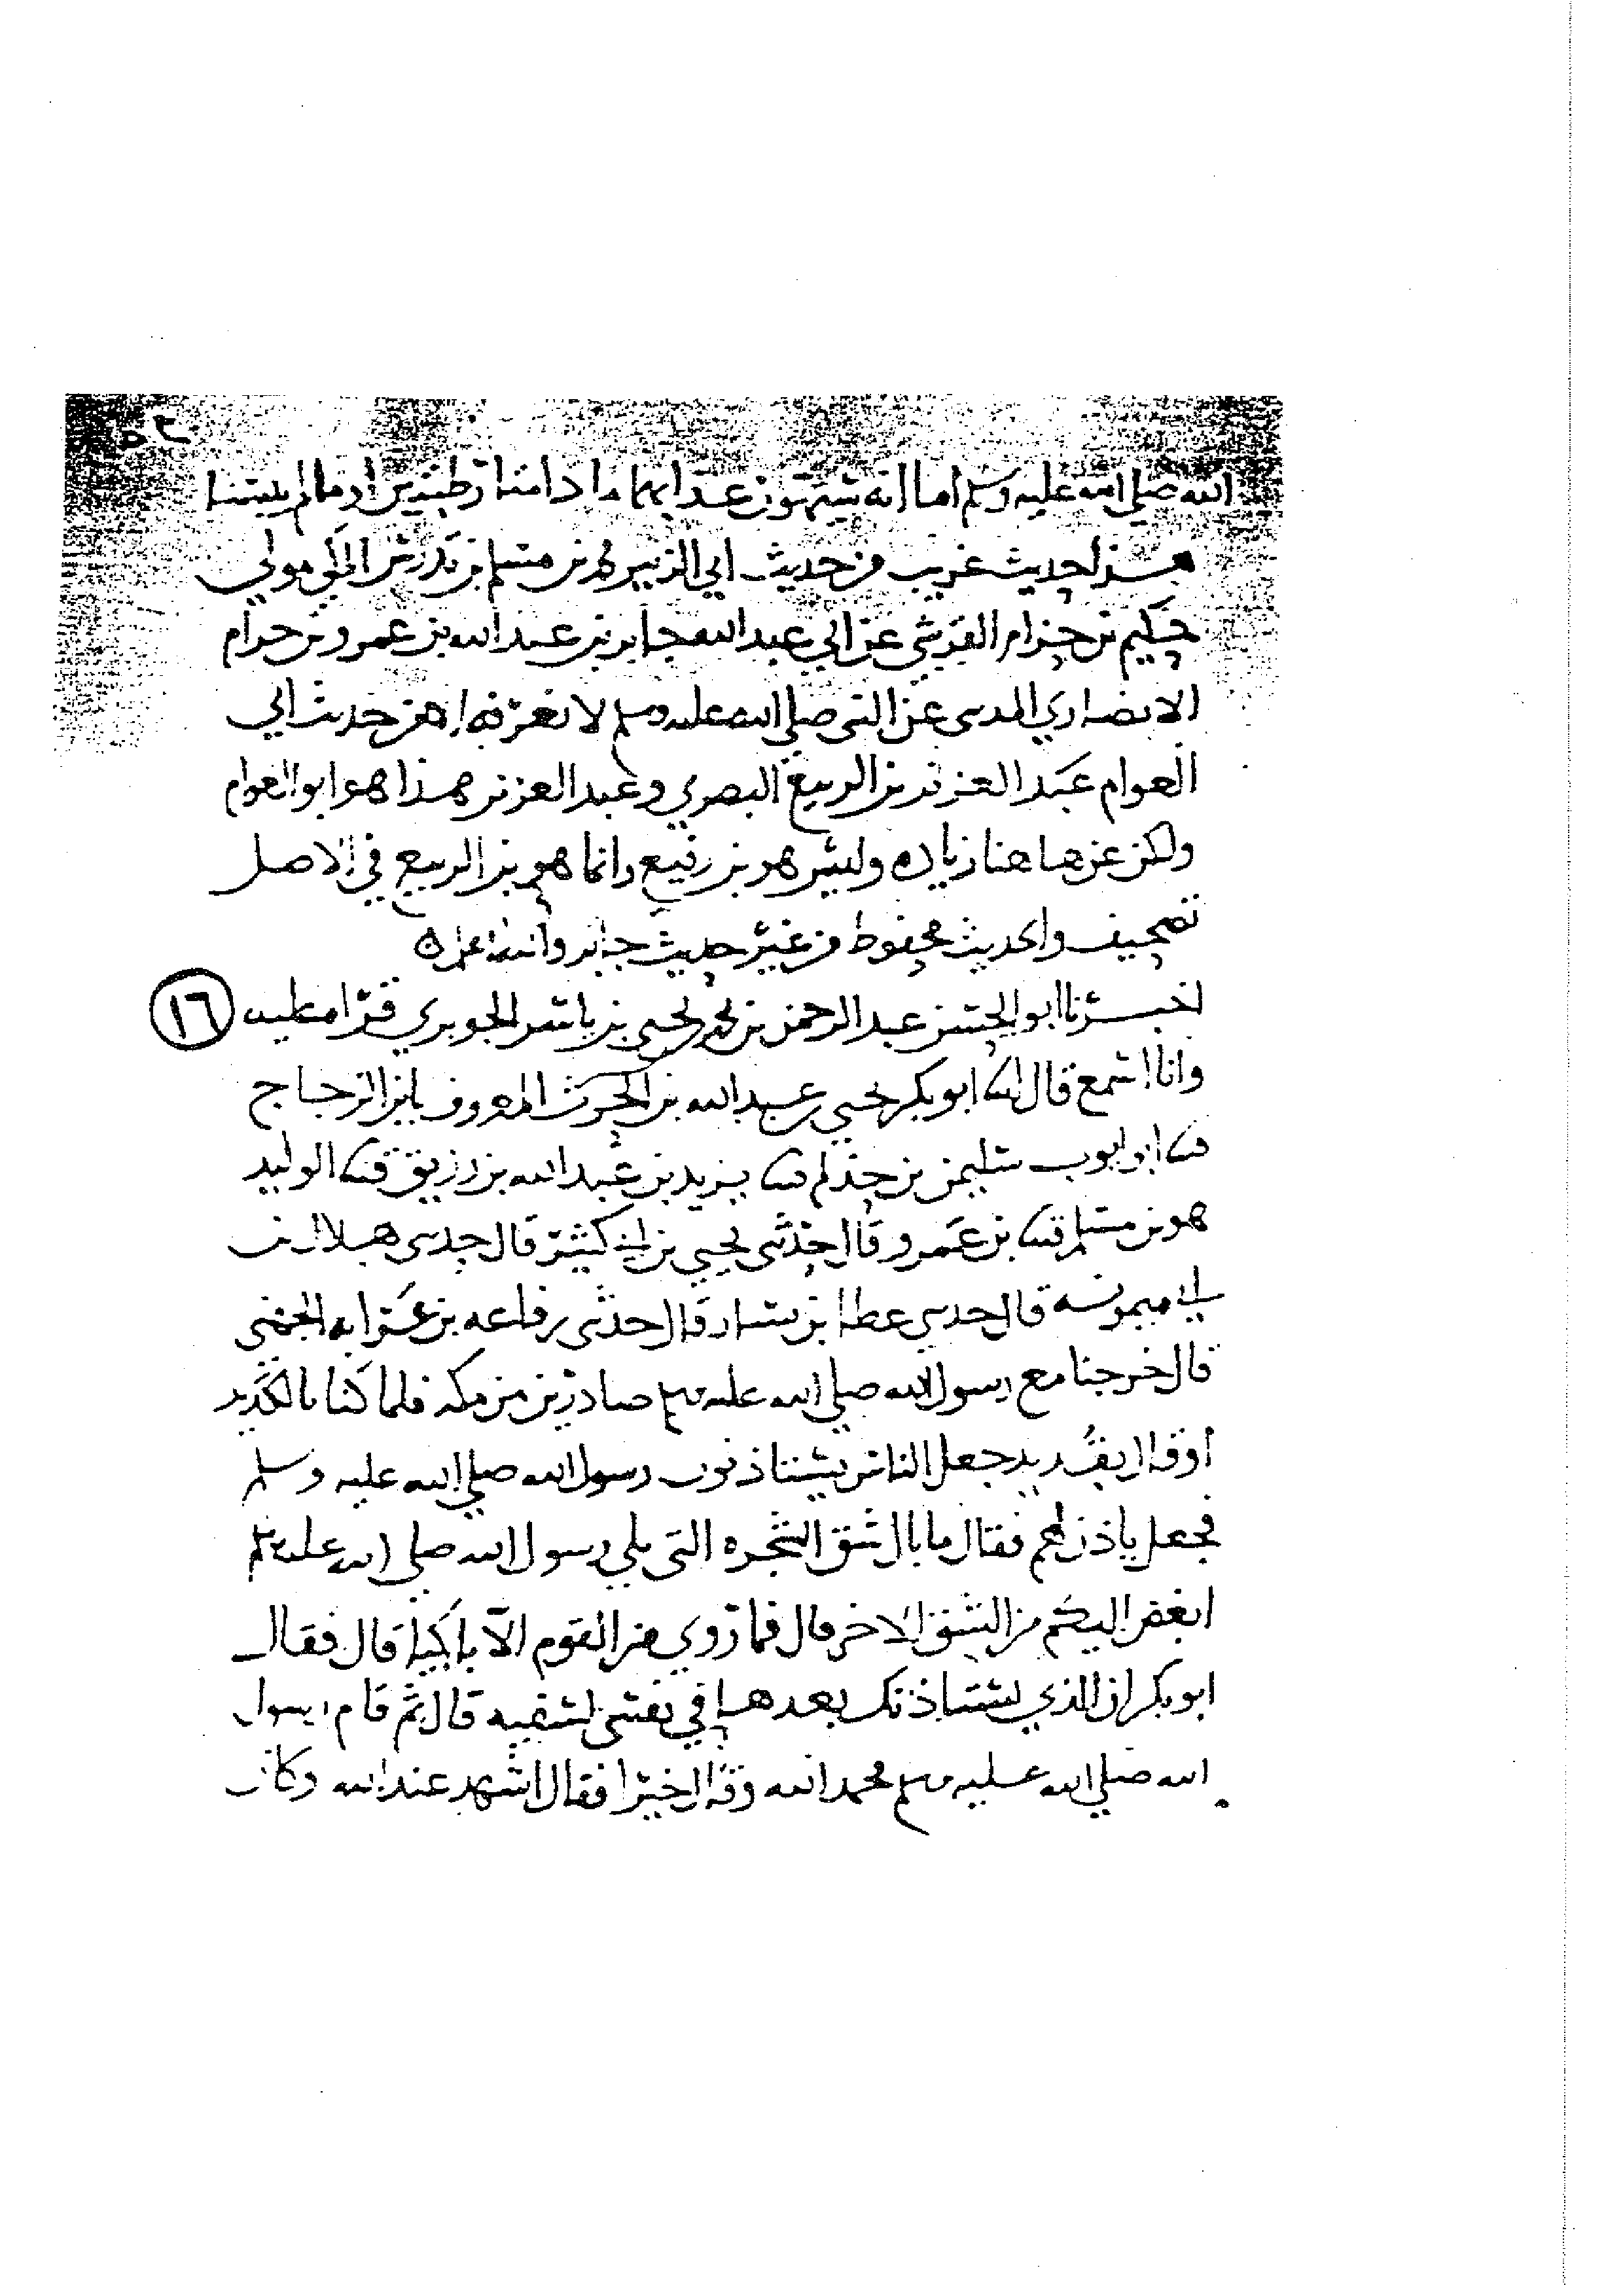 الله صلي الله عليه وسلم اما انه سيهون عذابهما ما دامتا رطبتين او ما لم ييبسا
هذا حديث غريب من حديث ابي الزبير محمد بن مسلم بن تدرس المكي مولي
حكيم بن حزام القرشي عن ابي عبد الله جابر بن عبد الله بن عمرو بن حرام
الانصاري المدني عن النبي صلي الله عليه وسلم لا نعرفه الا من حديث ابي
العوام عبد العزيز بن الربيع البصري وعبد العزيز هذا هو ابو العوام
ولكن عن هاهنا زياده وليس هو بن رفيع وانما هو بن الربيع في الاصل
تصحيف والحديث محفوظ من غير حديث جابر والله اعلم ه
اخبرنا ابو الحسن عبد الرحمن بن محمد بن يحيي بن ياسر الجوبري قراه عليه ١٦
وانا اسمع قال انا ابو بكر يحيي بن عبد الله بن الحرث المعروف بابن الزجاج
ثنا ابو ايوب سليمن بن حذلم ثنا يزيد بن عبد الله بن رزيق ثنا الوليد
هو بن مسلم ثنا بن عمرو قال حدثني يحيي بن ابي كثير قال حدثني هلال بن
ابي ميمونه قال حدثني عطا بن يسار قال حدثني رفاعه بن عرابه الجهني
قال خرجنا مع رسول الله صلي الله عليه وسلم صادرين من مكه فلما كنا بالكديد
او قال بقديد جعل الناس يستاذنون رسول الله صلي الله عليه وسلم
فجعل ياذن لهم فقال ما بال شق الشجره التي تلي رسول الله صلي الله عليه وسلم
ابغض اليكم من الشق الاخر قال فما روي من القوم الا باكيا قال فقال
ابو بكر ان الذي يستاذنك بعدها في نفسي لسفيه قال ثم قام رسول
الله صلي الله عليه وسلم فحمد الله وقال خيرا فقال اشهد عند الله وكان